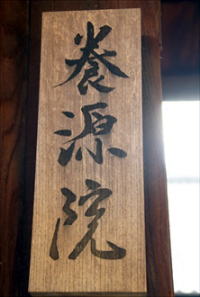 養源院